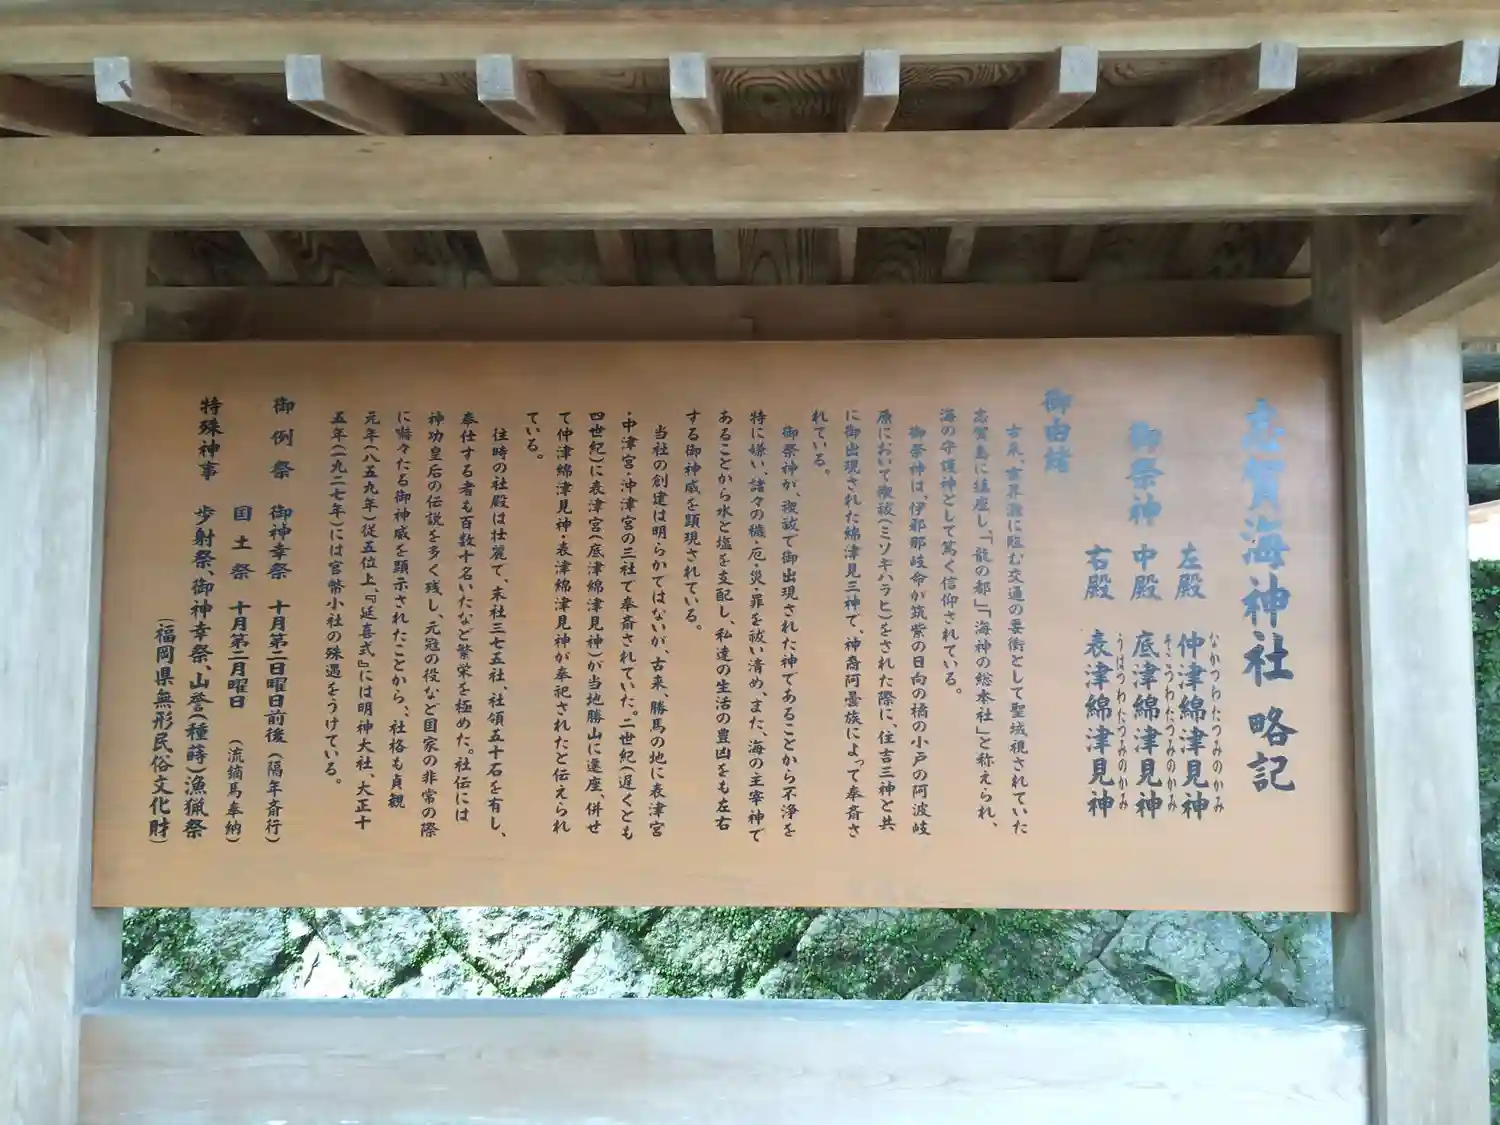 志賀海神社 略記
御祭神 左殿 仲津綿津見神
なかつわたつみのかみ
中殿 底津綿津見神
そこつわたつみのかみ
右殿 表津綿津見神
うはつわたつみのかみ
御由緒
古来、玄界灘に臨む交通の要衝として聖域視されていた
志賀島に鎮座し、「龍の都」「海神の総本社」と称えられ、
海の守護神として篤く信仰されている。
御祭神は、伊邪那岐命が筑紫の日向の橘の小戸の阿波岐
原において禊祓(ミソキハラヒ)をされた際に、住吉三神と共
に御出現された綿津見三神で、神裔阿曇族によって奉斎さ
れている。
御祭神が、禊祓で御出現された神であることから不浄を
特に嫌い、諸々の穢・厄・災・罪を祓い清め、また、海の主宰神で
あることから水と塩を支配し、私達の生活の豊凶をも左右
する御神威を顕現されている。
当社の創建は明らかではないが、古来、勝馬の地に表津宮
・中津宮・沖津宮の三社で奉斎されていた。二世紀(遅くとも
四世紀)に表津宮(底津綿津見神)が当地勝山に遷座、併せ
て仲津綿津見神・表津綿津見神が奉祀されたと伝えられ
ている。
往時の社殿は壮麗で、末社三七五社、社領五十石を有し、
奉仕する者も百数十名いたなど繁栄を極めた。社伝には
神功皇后の伝説を多く残し、元寇の役など国家の非常の際
に赫々たる御神威を顕示されたことから、社格も貞観
元年(八五九年)従五位上、『延喜式』には明神大社、大正十
五年(一九二七年)には官幣小社の殊遇をうけている。
御例祭 御神幸祭 十月第二日曜日前後 (隔年斎行)
国土祭 十月第二月曜日 (流鏑馬奉納)
特殊神事 歩射祭、御神幸祭、山誉(種蒔)漁猟祭
(福岡県無形民俗文化財)